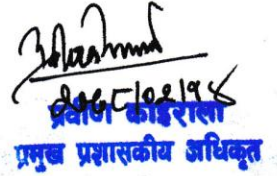 २०७८/०२/१४
प्रवीण कोइराला
प्रमुख प्रशासकीय अधिकृत